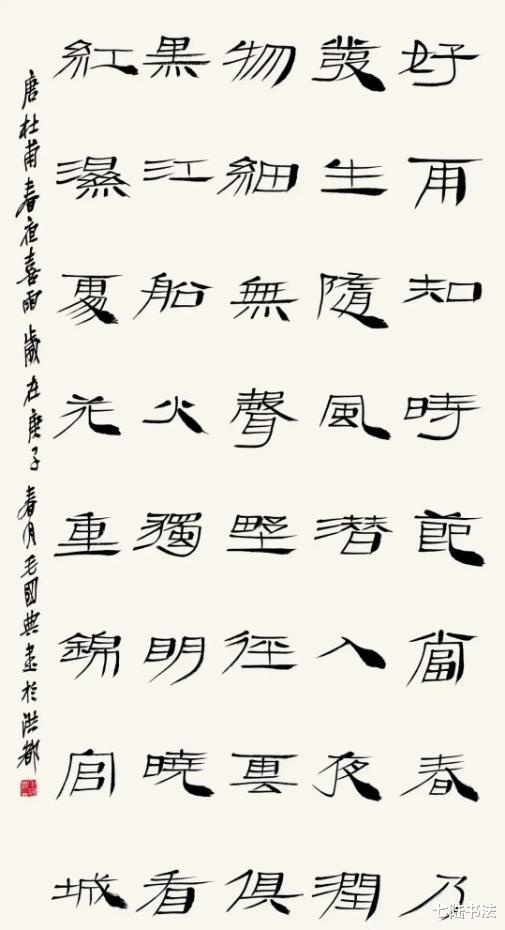 好雨知時節當春乃
發生隨風潜入夜潤
物細無聲野徑雲俱
黑江船火獨明曉看
紅濕處花重錦官城
唐杜甫春夜喜雨歲在庚子春月毛國典書於洪都
七陆书法